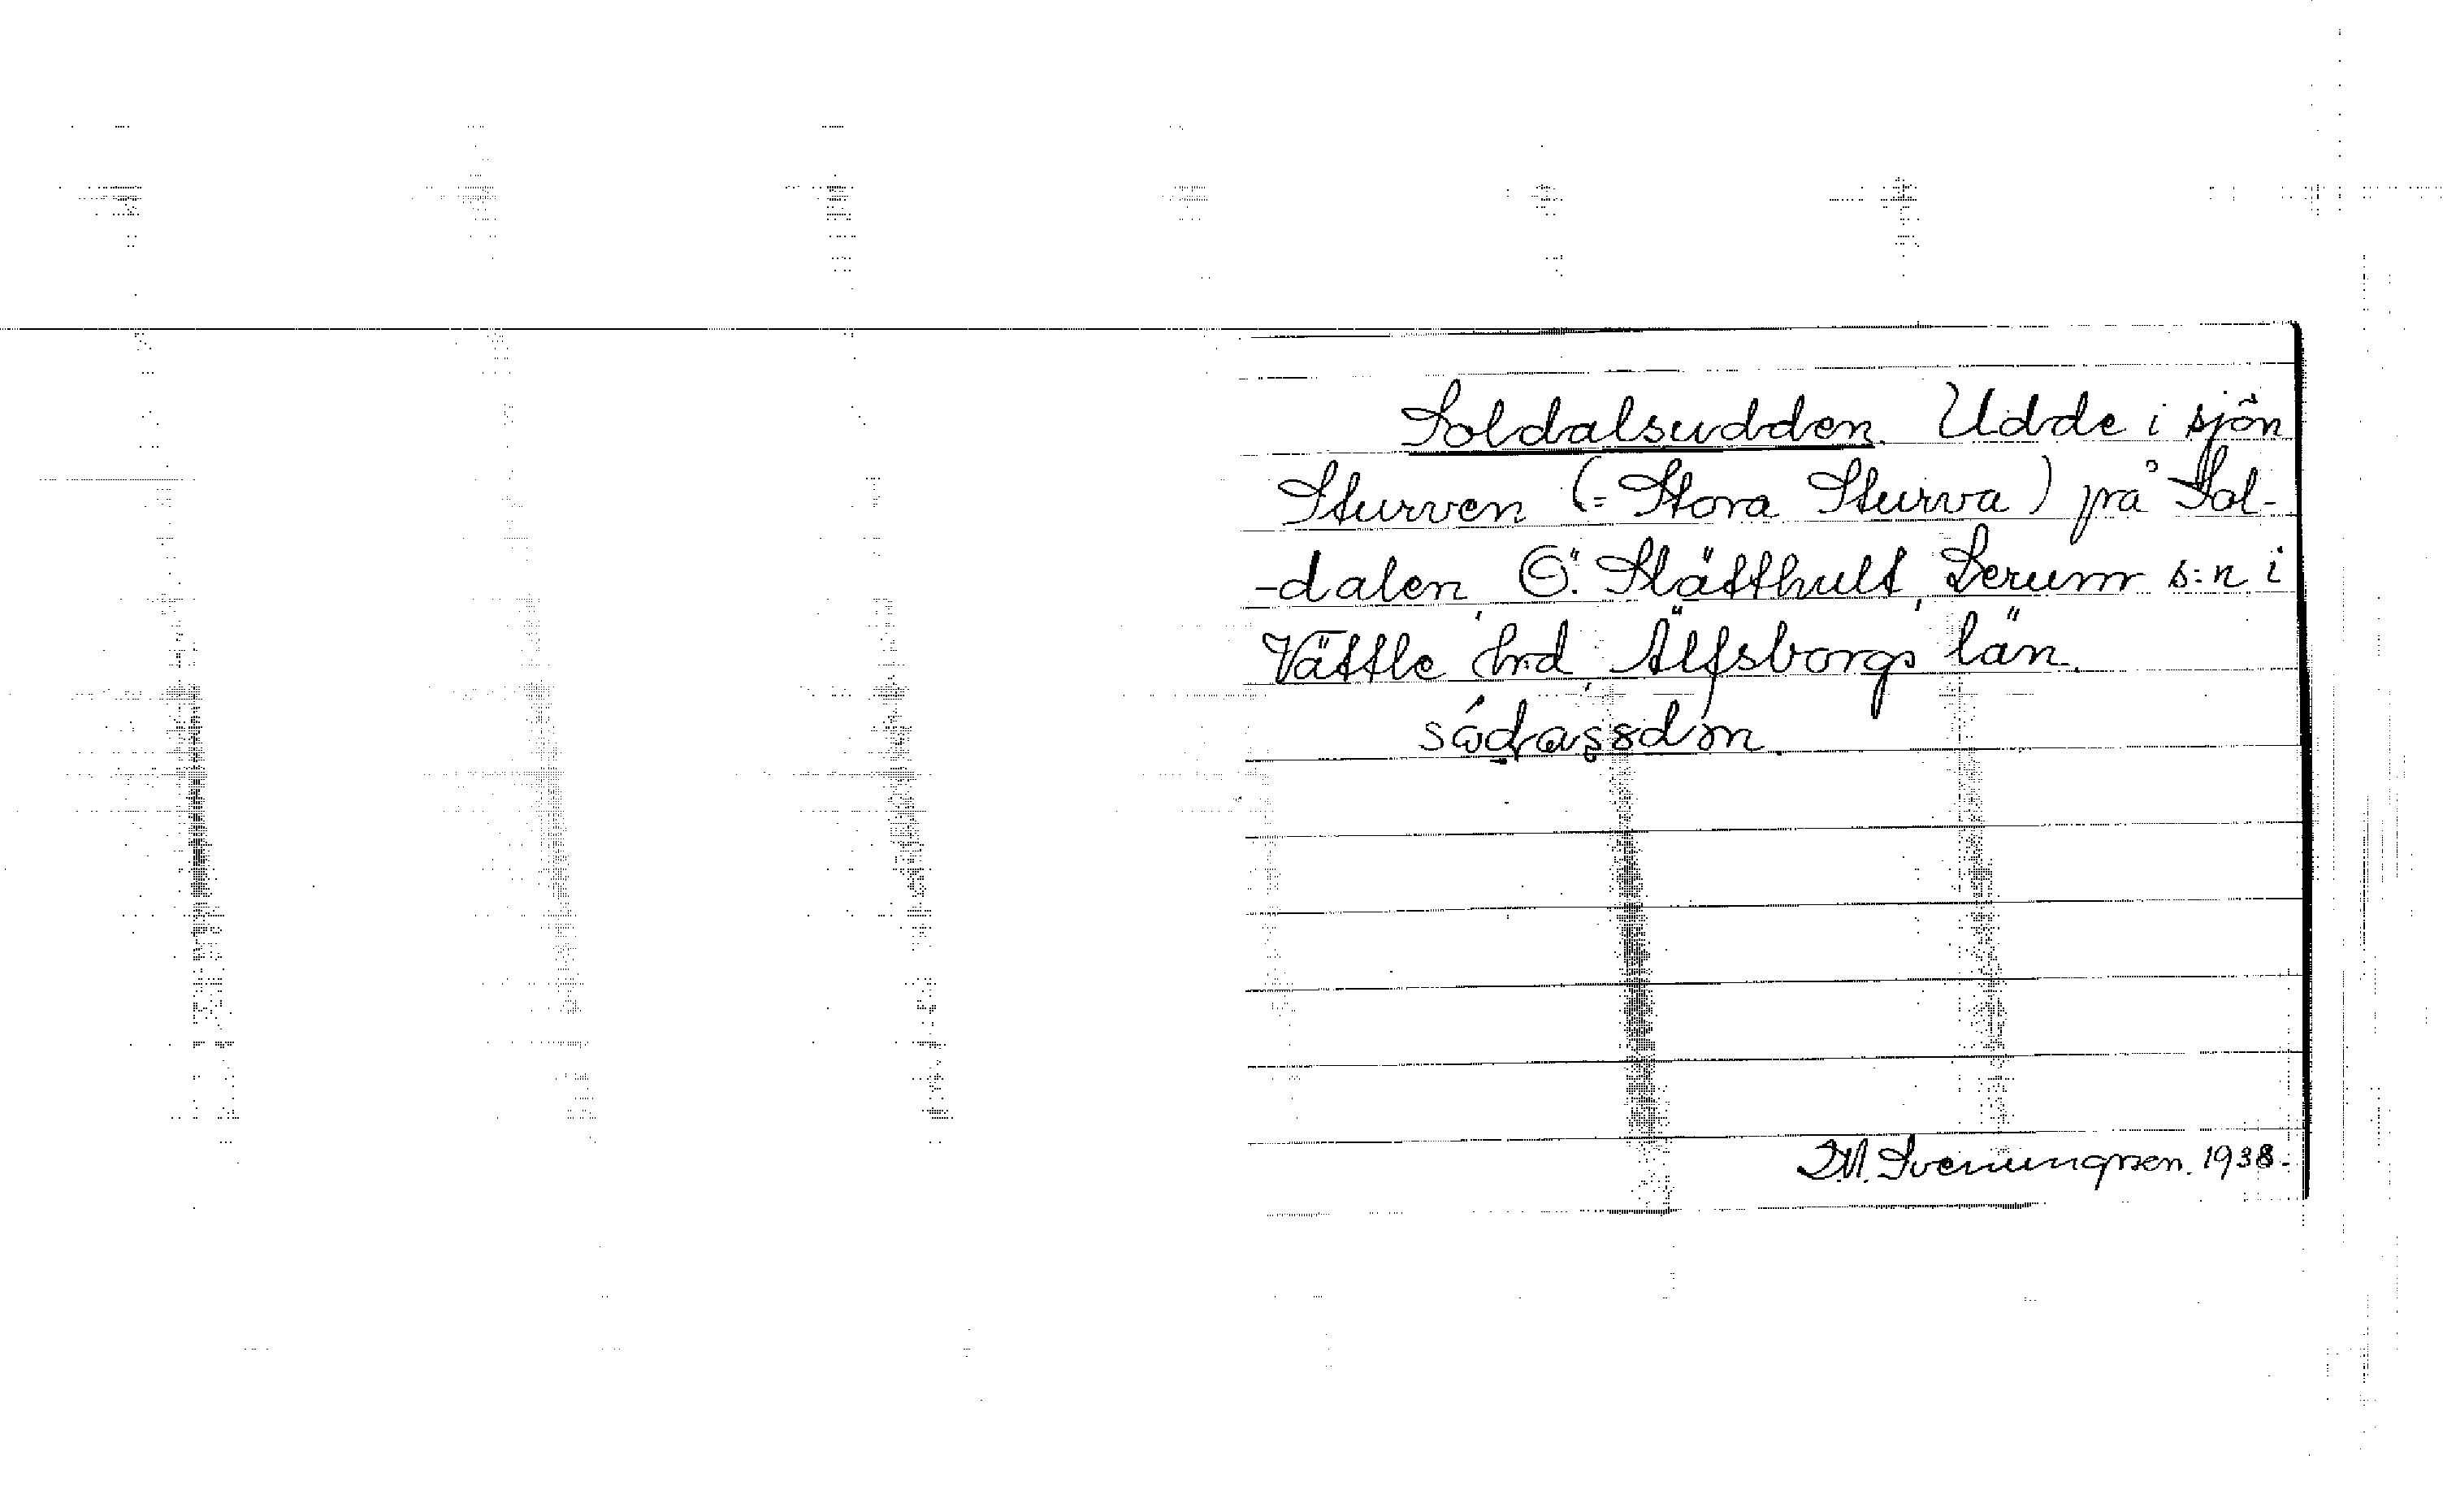 Soldalsudden. Udde i sjön
Sturven (= Stora Sturva) på Sol-
-dalen, Ö. Slätthult, Lerum s:n i
Vättle hrd, Älfsborgs län.
D.M. Svenungsson. 1938.